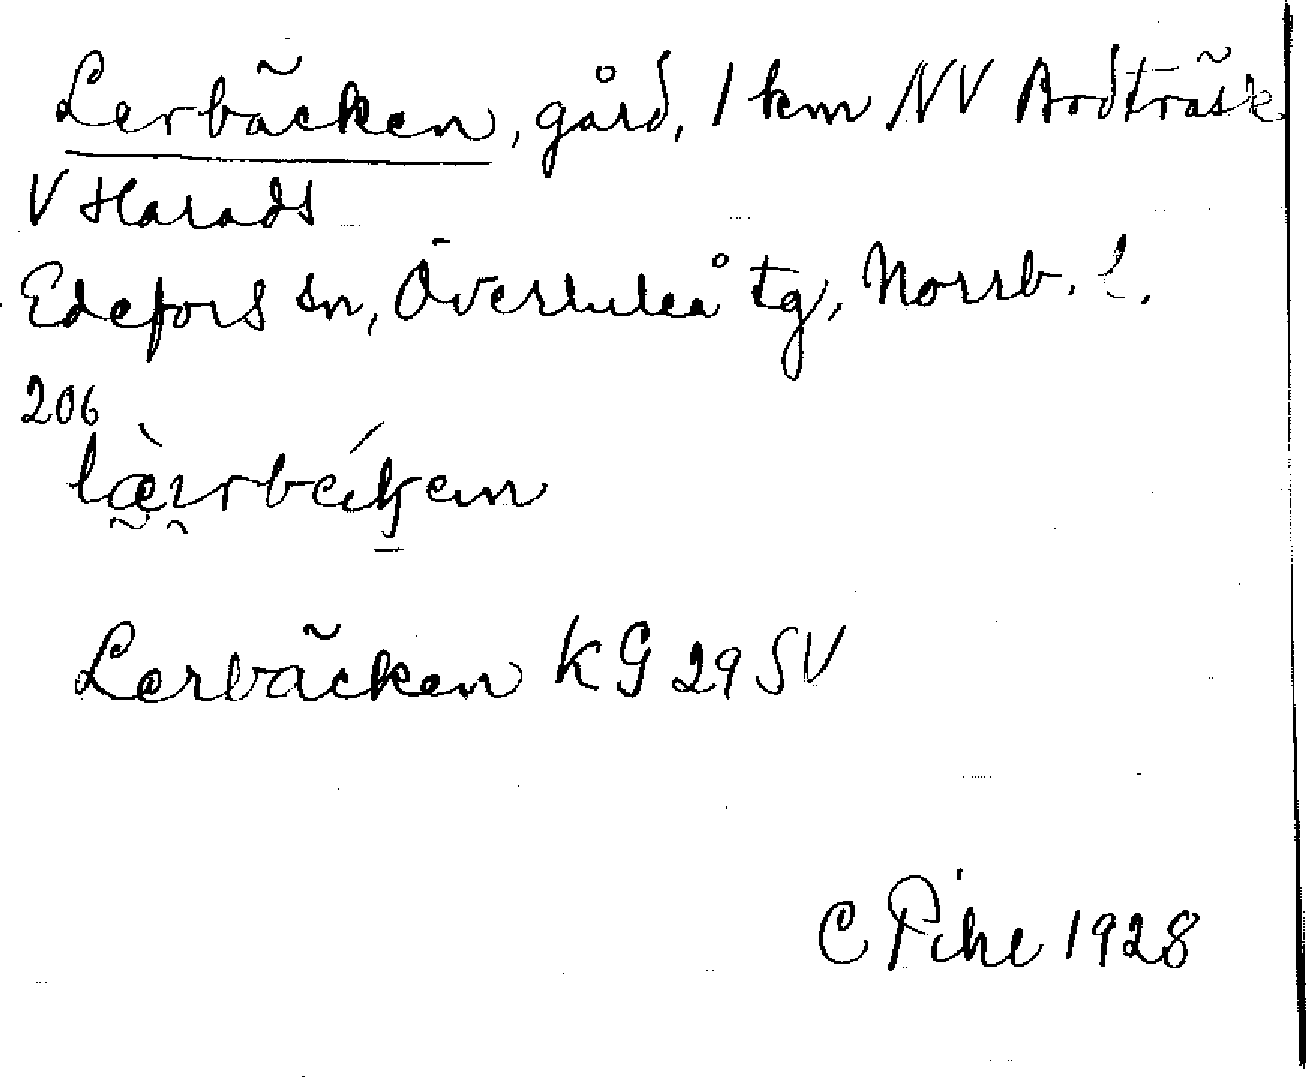 Lerbäcken, gård, 1 km NV Avdträsk
V Harads
Edefors sn, Överluleå tg, Norrb. l.
206
Lerbäcken KG 29 SV
C Pihl 1928